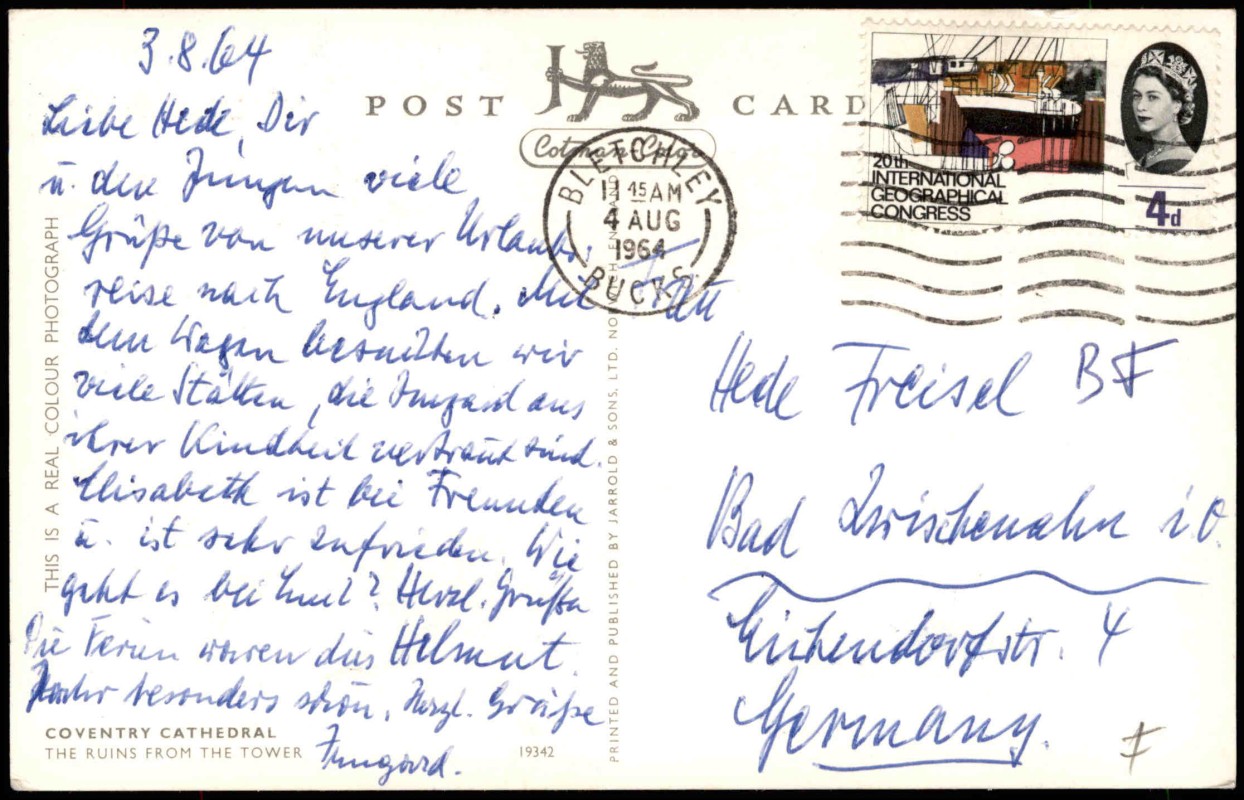 3.8.64
Liebe Hede, Dir
u. den Jungen viele
Grüße von unserer Urlaubs-
reise nach England. Mit
dem Wagen besuchten wir
viele Stätten, die Irmgard aus
ihrer Kindheit vertraut sind.
Elisabeth ist bei Freunden
u. ist sehr zufrieden. Wie
geht es bei Euch? Herzl. Grüße
Helmut.
Die Ferien waren dies
Jahr besonders schön. Herzl. Grüße
Irmgard.
COVENTRY CATHEDRAL
THE RUINS FROM THE TOWER
19342
THIS IS A REAL COLOUR PHOTOGRAPH
POST CARD
Cotman-Color
PRINTED AND PUBLISHED BY JARROLD & SONS, LTD. NORWICH ENGLAND
BLETCHLEY
11 45 AM
4 AUG
1964
BUCKS
20th
INTERNATIONAL
GEOGRAPHICAL
CONGRESS
4d
Frau
Hede Freisel
Bad Zwischenahn i.O.
Eichendorfstr. 4
Germany.